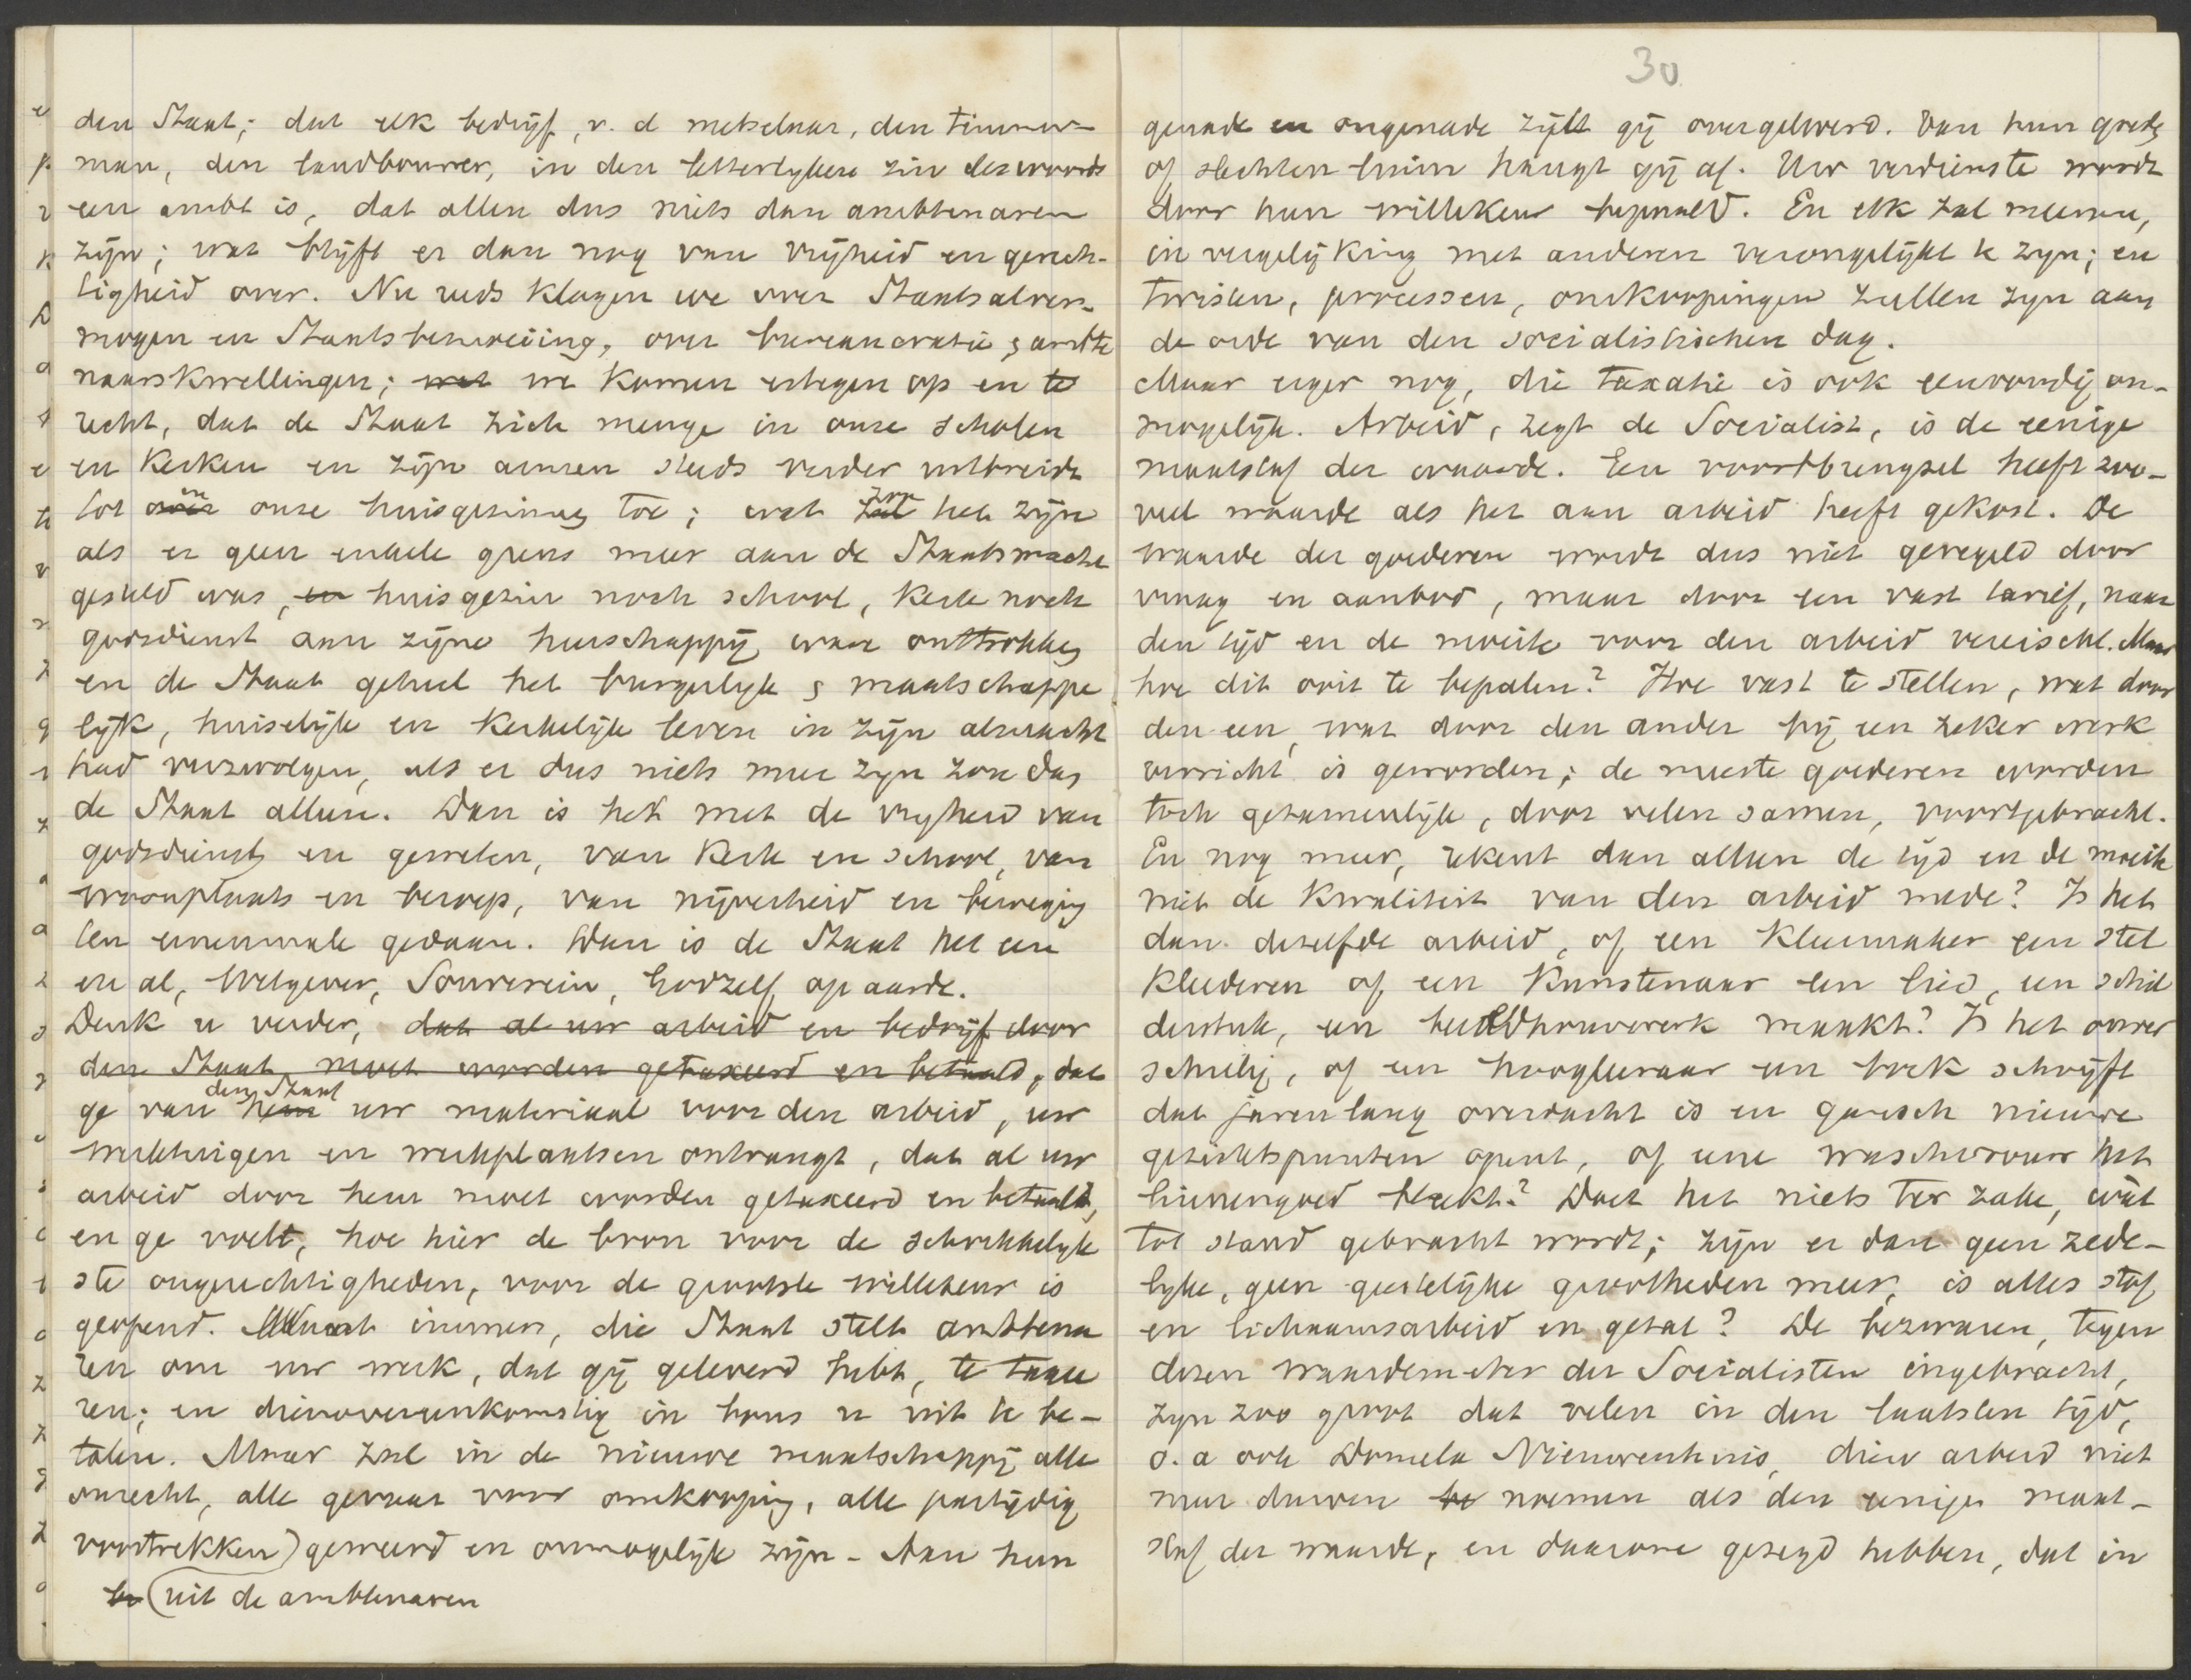 den Staat; dat elk bedrijf, v. d metselaar, den timmer-
man, den landbouwer, in den letterlijken zin des woords
een ambt is, dat allen dus niets dan ambtenaren
zijn; wat blijft er dan nog van vrijheid en gerech-
tigheid over. Nu reeds klagen we over Staatsalver-
mogen en Staatsbemoeiing, over bureaucratie & ambte
naarskwellingen; wat we komen ertegen op en te
recht, dat de Staat zich menge in onze scholen
en kerken en zijn armen steeds verder uitbreide
tot over in onze huisgezinnen toe; wat zal zou het zijn
als er geen enkele grens meer aan de Staatsmacht
gesteld was, en huisgezin noch school, kerk noch
godsdienst aan zijne heerschappij waar onttrokken
en de Staat geheel het burgerlijk & maatschappe
lijk, huiselijk en kerkelijk leven in zijn almacht
had verzwolgen, als er dus niets meer zijn zou dan
de Staat alleen. Dan is het met de vrijheid van
godsdienst en geweten, van kerk en school, van
woonplaats en beroep, van nijverheid en beweging
ten eenenmale gedaan. Dan is de Staat het een
en al, Wetgever, Souverein, God zelf op aarde.
Denk u verder, dat al uw arbeid en bedrijf door
den Staat moet worden getaxeerd en betaald, dat
ge van hem den Staat uw materiaal voor den arbeid, uw
werktuigen en werkplaatsen ontvangt, dat al uw
arbeid door hem moet worden getaxeerd en betaald,
en ge voelt, hoe hier de bron voor de schrikkelijk
ste ongerechtigheden, voor de grootste willekeur is
geopend. Want immers, die Staat stelt ambtena
ren om uw werk, dat gij geleverd hebt, te taxe
ren; en dienovereenkomstig in hous u uit te be-
talen. Maar zal in de nieuwe maatschappij alle
onrecht, alle gevaar voor omkooping, alle partijdig
voortrekken) geweerd en onmogelijk zijn - Aan hun
be (uit de ambtenaren
30
genade en ongenade zijtt gij overgeleverd. Van hun goede
of slechten luim hangt gij af. Uw verdienste wordt
door hun willekeur bepaald. En elk zal meenen,
in vergelijking met anderen verongelijkt te zijn; en
twisten, processen, omkoopingen zullen zijn aan
de orde van den socialistischen dag.
Maar erger nog, die taxatie is ook eenvoudig on-
mogelijk. Arbeid, zegt de Socialist, is de eenige
maatstaf der waarde. Een voortbrengsel heeft zoo-
veel waarde als het aan arbeid heeft gekost. De
waarde der goederen wordt dus niet geregeld door
vraag en aanbod, maar door een vast tarief, naar
den tijd en de moeite voor den arbeid vereischt. Maar
hoe dit ooit te bepalen? Hoe vast te stellen, wat door
den een, wat door den ander bij een zeker werk
verricht is geworden; de meeste goederen worden
toch gezamenlijk, door velen samen, voortgebracht.
En nog meer, rekent dan alleen de tijd en de moeite
niet de kwaliteit van den arbeid mede? Is het
dan dezelfde arbeid, of een kleermaker een stel
kleederen of een kunstenaar een lied, een schil
derstuk, een beeldhouwwerk maakt? Is het onver
schillig, of een hoogleeraar een boek schrijft
dat jarenlang overdacht is en gansch nieuwe
gezichtspunten opent, of eene waschvrouw het
linnengoed bleekt? Doet het niets ter zake, wàt
tot stand gebracht wordt; zijn er dan geen zede-
lijke, geen geestelijke grootheden meer, is alles stof
en lichaamsarbeid en getal? De bezwaren, tegen
dezen waardemeter der Socialisten ingebracht,
zijn zoo groot dat velen in den laatsten tijd,
o. a ook Domela Nieuwenhuis, dien arbeid niet
meer durven te noemen als den eenigen maat-
staf der waarde, en daarom gezegd hebben, dat in